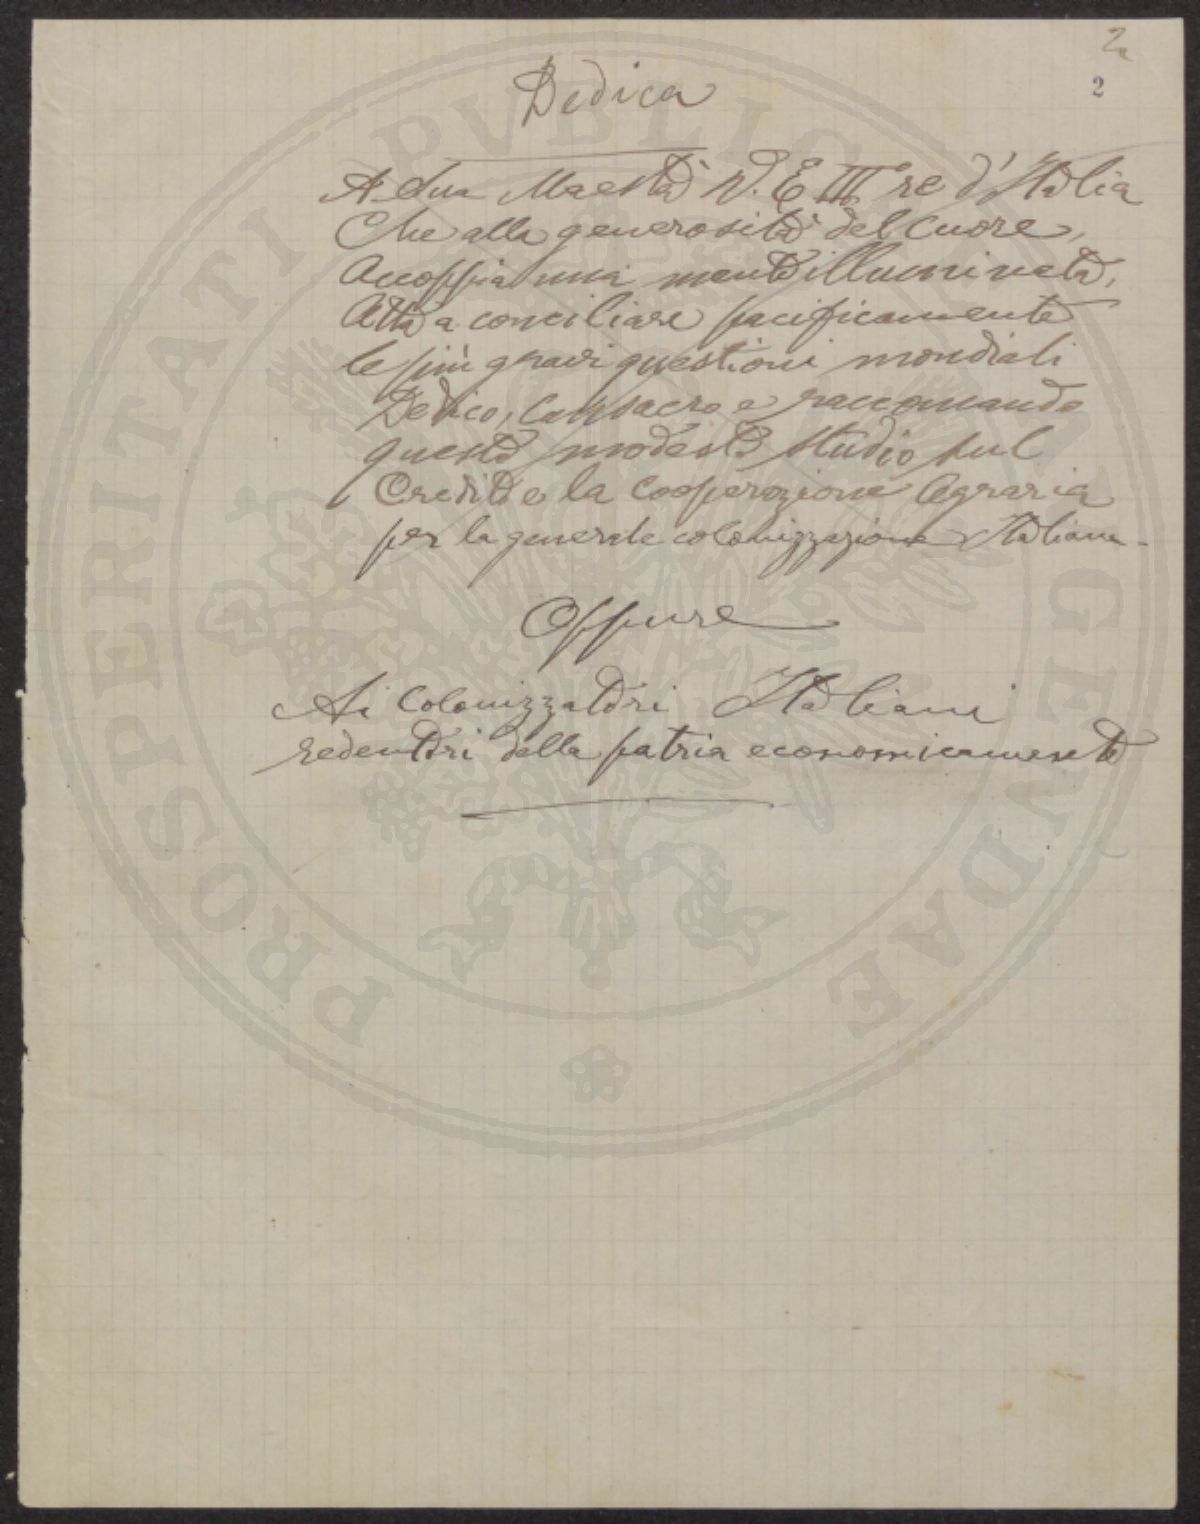 2a
2
Dedica
A Sua Maestà V. E III re d'Italia
Che alla generosità del Cuore,
Accoppia una mente illuminata,
Atta a conciliare pacificamente
le più gravi questioni mondiali
Dedico, Consacro e raccomando
questo modesto studio sul
Credito e la Cooperazione Agraria
per la generale colonizzazione Italiana.
Oppure
Ai Colonizzatori Italiani
redentori della patria economicamente
PROSPERITATI PVBLICAE AVGENDAE